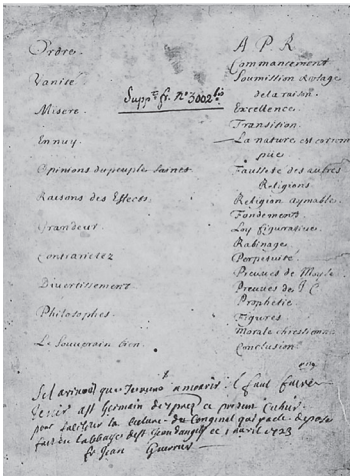 Ordre.
Vanité
Misere.
Ennuy.
Opinions du peuple saines
Raisons des Effects.
Grandeur
Contrarietez
Divertissement.
Philosophes.
Le Souverain bien.
A P R
Commancement
Soumission & usage
de la raison.
Excellence.
Transition.
La nature est corrom
pue
Fausseté des autres
Religions.
Religion aymable.
Fondements
Loy figurative.
Rabinage
Perpetuité.
Preuves de Moyse
Preuves de J C
Prophetie.
Figures
Morale chrestienne
Conclusion
Suppt. fr. No 3002 bis
a mourir: il faut
St Germain
pour la
de l'original qui a esté deposé
de l'abbaye de St Germain ce 1 avril 1723
fr Jean Guerrier